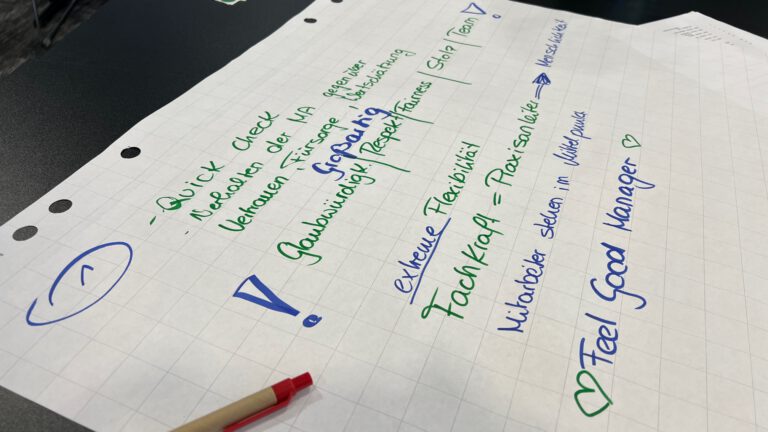 - Quick Check
- Verhalten der MA gegenüber
Vertrauen, Fürsorge, Wertschätzung
Großartig
Glaubwürdigk. / Respekt / Fairness / Stolz / Team !
!
extreme Flexibilität
Fachkraft = Praxisanleiter → Menschlichkeit
Mitarbeiter stehen im Mittelpunkt
♡ Feel Good Manager ♡
1